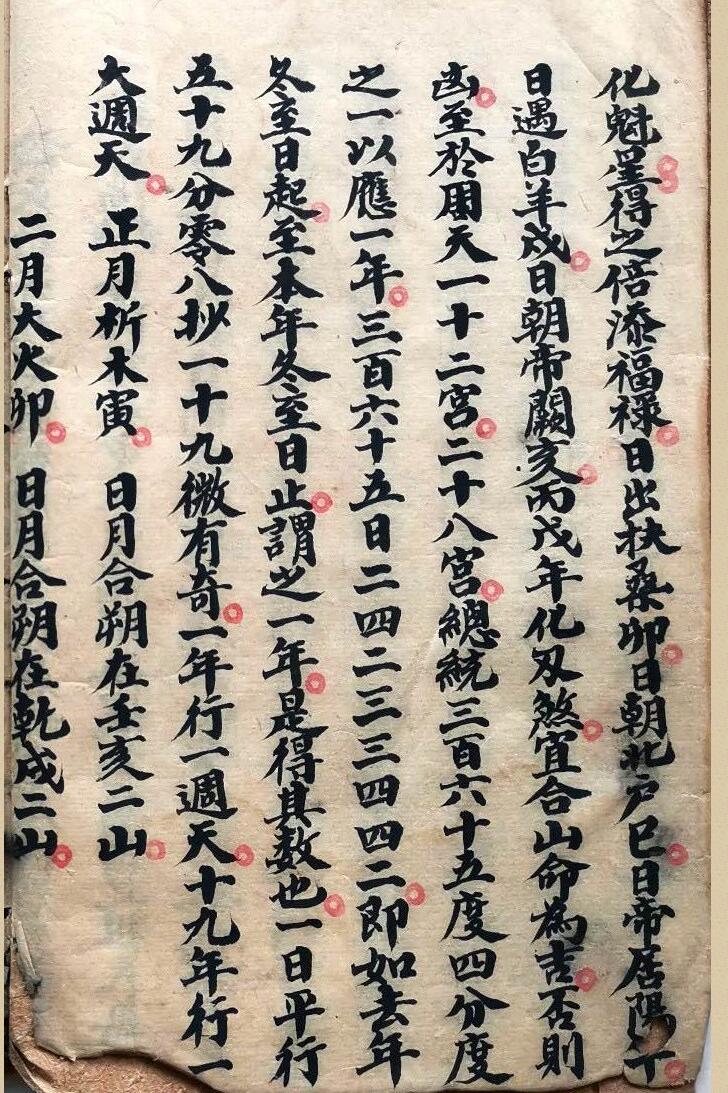 化魁星得之倍添福祿日出扶桑卯日朝北戶巳日帝居陽
日遇白羊戍日朝帝闕亥丙戊年化刃煞宜合山命為吉否則
凶至於周天一十二宮二十八宮總統三百六十五度四分度
之一以應一年三百六十五日二四二三三四四二即如去年
冬至日起至本年冬至日止謂之一年是得其数也一日平行
五十九分零八抄一十九微有奇一年行一週天十九年行一
大週天 正月析木寅 日月合朔在壬亥二山
二月大火卯 日月合朔在乾戍二山